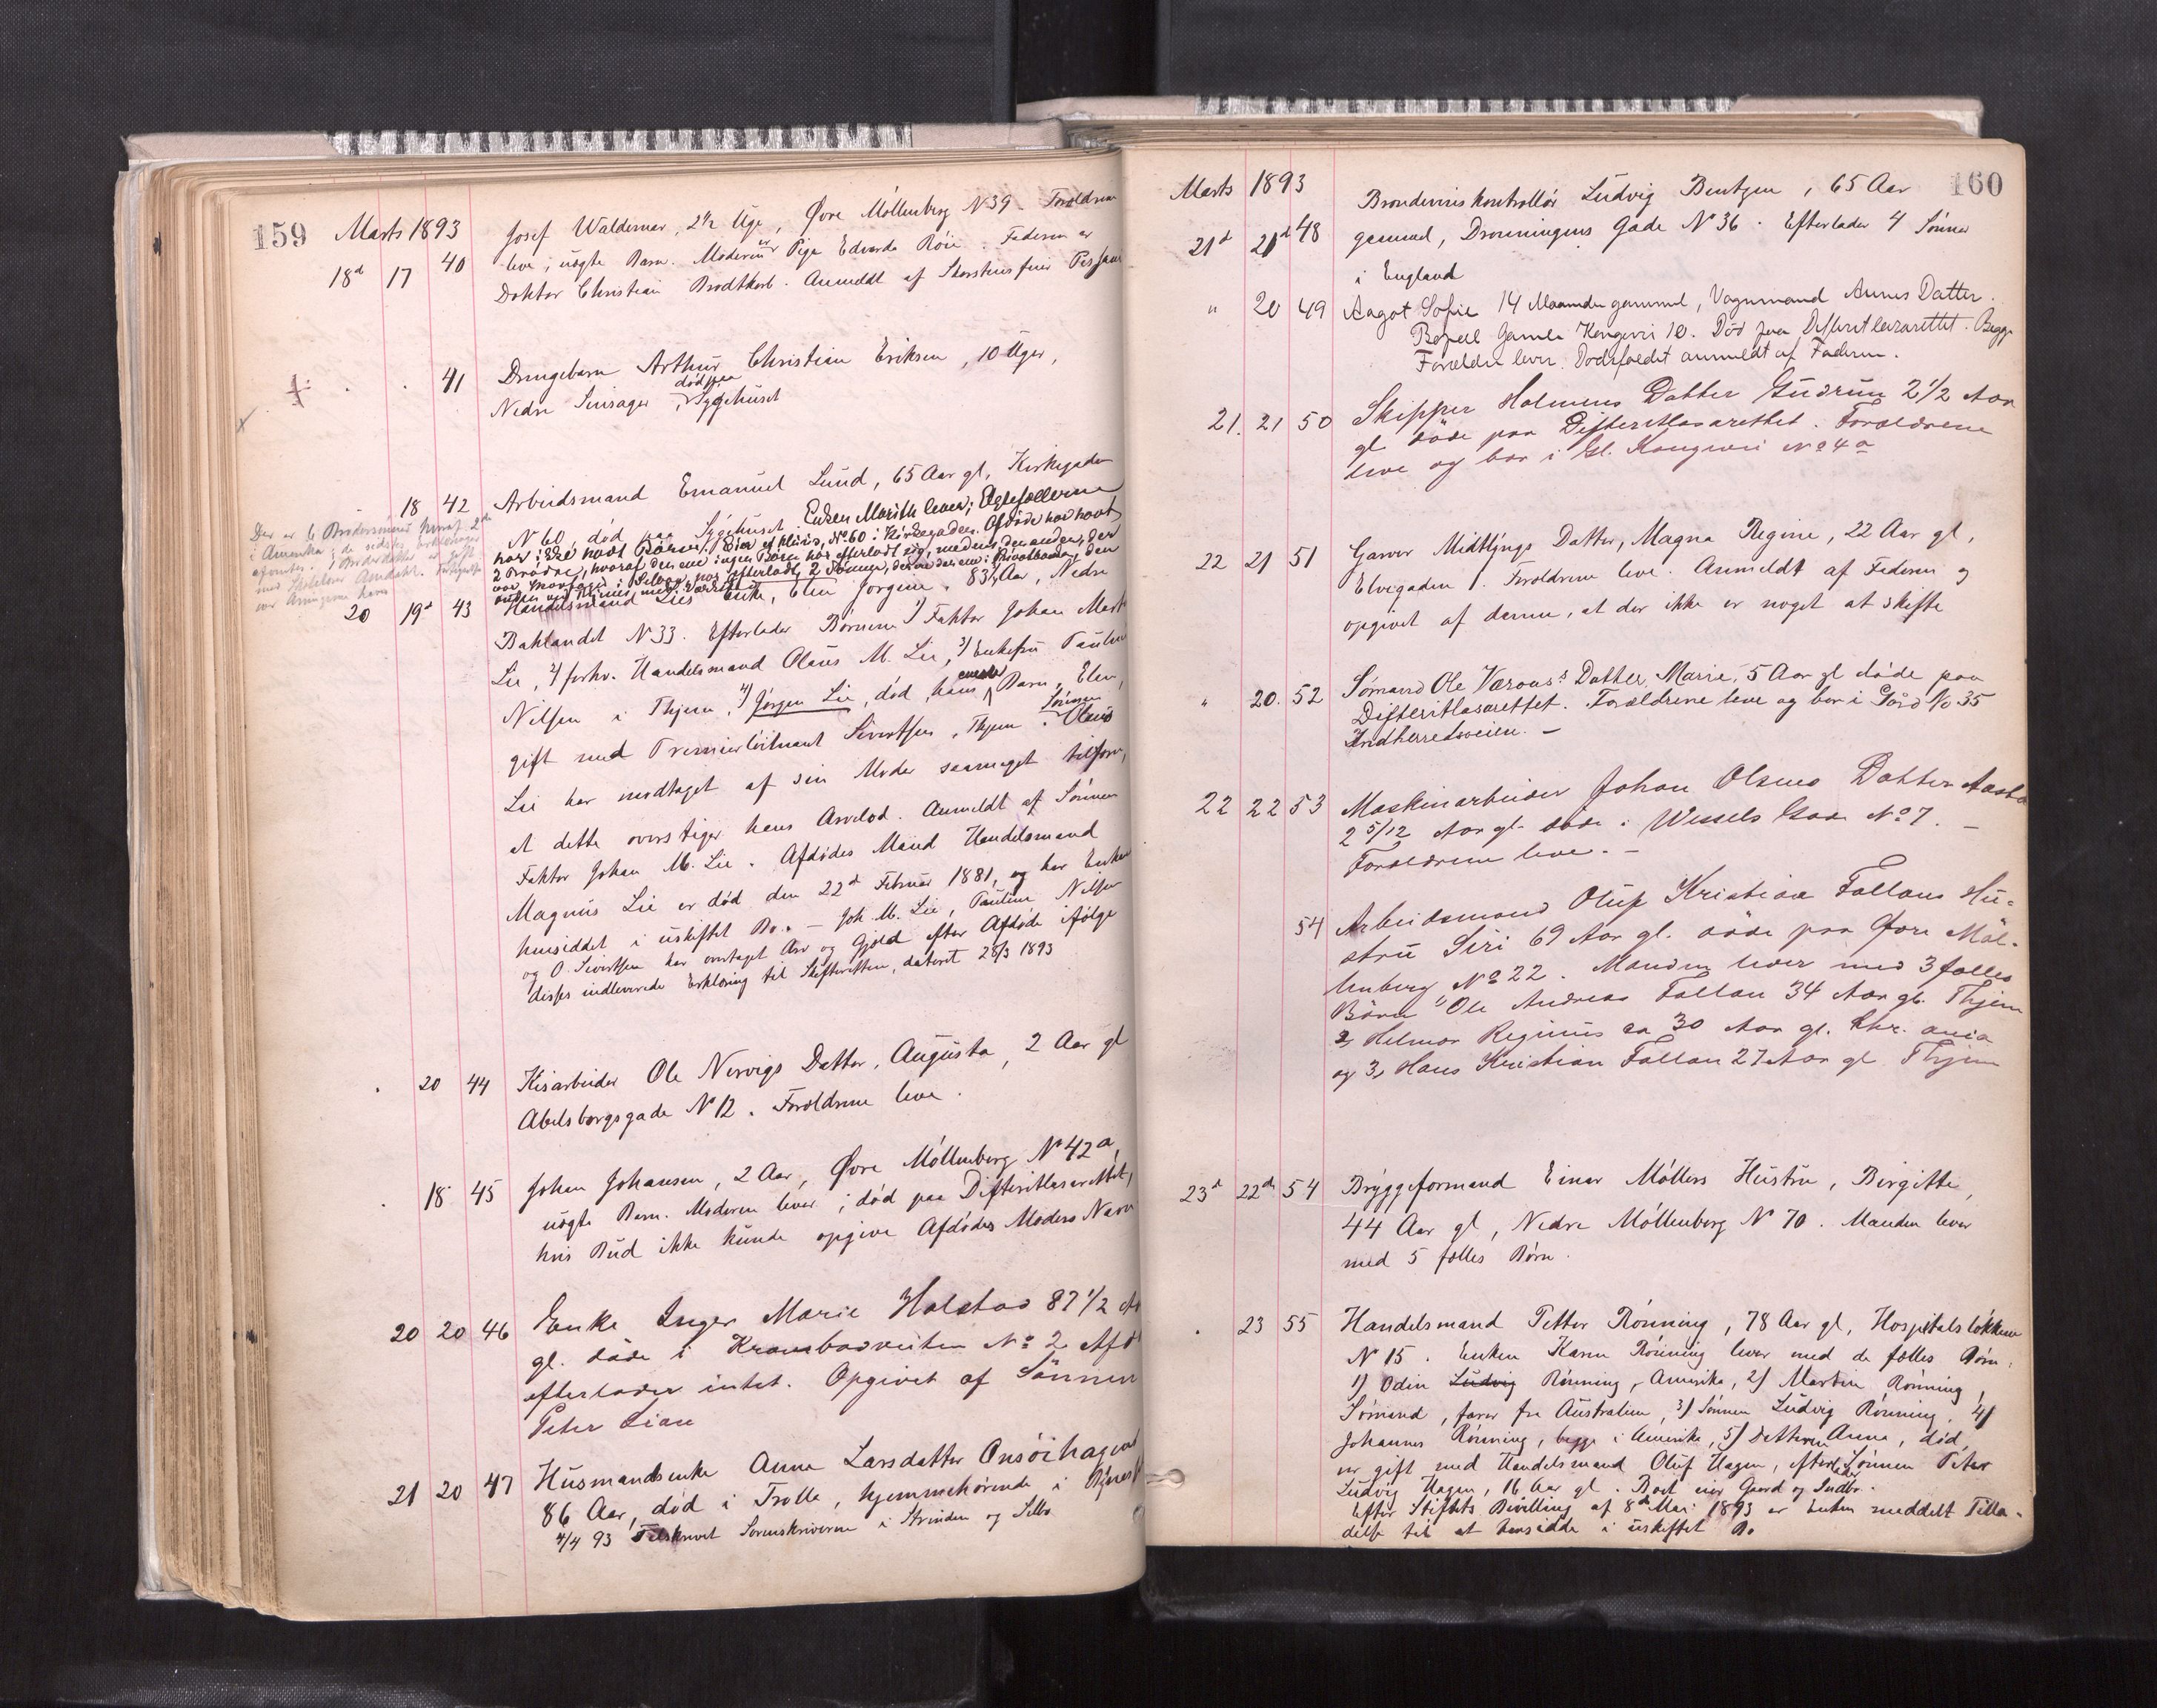 159 Marts 1893
18d 17 40 Josef Waldemar, 2½ Uge, Øvre Möllenberg N 39 Forældrene
leve; uægte Barn. Moderen er Pige Edvarda Röie. Faderen er
Doktor Christian Brodtkorb. Anmeldt af Skorstensfeier
41 Drengebarn Arthur Christian Eriksen, 10 Uger,
Nedre Singsager, død paa Sygehuset
18 42 Arbeidsmand Emanuel Lund, 65 Aar gl, Kirkegaden
N 60, død paa Sygehuset. Enken Marith lever; Ægtefællerne
har ikke havt Börn. Eier af Huus, No. 60 i Kirkegaden. Afdøde har havt
2 Brødre, hvoraf den ene ingen Börn har efterladt sig, medens den anden, der
var i Selbu, har efterladt 2 Sönner, den ene
Der er 6 hvoraf 2de
i Amerika; de
20 19d 43 Handelsmand Lies Enke, Elen Jorgine, 83½ Aar, Nedre
Baklandet N 33. Efterlader Börnene 1) Faktor Johan Mart
Lie, 2) forhv. Handelsmand Olaus M. Lie, 3) Enkefru Pauline
Nilsen i Thjem, 4) Jørgen Lie, død, hans eneste Barn, Elen,
gift med Premierløitnant Sivertsen, Thjem. Sönnen Olaus
Lie har modtaget af sin Moder saameget tilforn,
at dette overstiger hans Arvelod. Anmeldt af Sönnen
Faktor Johan M. Lie. Afdødes Mand Handelsmand
Magnus Lie er död den 22d Februar 1881, og har Enken
hensiddet i uskiftet Bo. – Joh. M. Lie, Pauline Nilsen
og O. Sivertsen har overtaget Arv og Gjæld efter Afdøde ifølge
disses indleverede Erklæring til Skifteretten, dateret 28/3 1893
20 44 Kisarbeider Ole Nervigs Datter, Augusta, 2 Aar gl
Abelsborgsgade N 12. Forældrene leve.
18 45 Johan Johansen, 2 Aar, Øvre Möllenberg N 42 a,
uægte Barn. Moderen lever; død paa Difteritlasarettet,
hvis Bud ikke kunde opgive Afdødes Moders Navn
20 20 46 Enke Inger Marie Halstad 87 1/2 Aar
gl. døde i Krambodveiten No 2 Afd
efterlader intet. Opgivet af Sönnen
Peter Lian
21 20 47 Husmandsenke Anna Larsdatter Onsöihagen
86 Aar, død i Trolla, hjemmehörende i
4/4 93 Tilskrevet Sorenskriveren i Strinden og Selbu
Marts 1893 160
21d 21d 48 Brændevinskontrollör Ludvig Bentzen, 65 Aar
gammel, Dronningens Gade No 36. Efterlader 4 Sönner
i England
" 20 49 Aagot Sofie 14 Maaneder gammel, Vognmand Aunes Datter.
Bopæl Gamle Kongevei 10. Död paa Difteritlazarettet. Begge
Forældre lever. Dödsfaldet anmeldt af Faderen.
21. 21 50 Skipper Holmens Datter Gudrun 2 1/2 Aar
gl döde paa Difteritlasarettet. Forældrene
leve og bor i Gl. Kongevei No 4a
22 21 51 Garver Midtlyngs Datter, Magna Regine, 22 Aar gl,
Elvegaden 1. Forældrene leve. Anmeldt af Faderen og
opgivet af denne, at der ikke er noget at skifte
" 20. 52 Sømand Ole Værous's Datter, Marie, 5 Aar gl døde paa
Difteritlasarettet. Forældrene leve og bor i Gård No 35
Indherredsveien. –
22 22 53 Maskinarbeider Johan Olsens Datter Aasta
2 5/12 Aar gl. døde i Wessels Gade No 7. –
Forældrene leve. –
54 Arbeidsmand Oluf Kristian Fallans Hu-
stru Siri 69 Aar gl. døde paa Øvre Möl-
lenberg No 22. Manden lever med 3 fælles
Börn 1) Ole Andreas Fallan 34 Aar gl. Thjem
2, Helmar Reginius ca 30 Aar gl. Chr.ania
og 3, Hans Kristian Fallan 27 Aar gl Thjem
23d 22de 54 Bryggeformand Einar Möllers Hustru, Birgitte,
44 Aar gl, Nedre Möllenberg N 70. Manden lever
med 5 fælles Börn.
23 55 Handelsmand Petter Rönning, 78 Aar gl, Hospitalslökken
N 15. Enken Karen Rönning lever med de fælles Börn:
1) Odin Ludvig Rönning, Amerika, 2) Martin Rönning,
Sömand, farer fra Australien, 3) Sönnen Ludvig Rönning, 4)
Johannes Rönning, begge i Amerika, 5) Datteren Anna, död,
var gift med Handelsmand Oluf Hagen, efterlader Sönnen Peter
Ludvig Hagen, 16 Aar gl. Boet eier Gaard og Indbo.
Efter Stiftets Bevilling af 8de Mai 1893 er Enken meddelt Tilla-
delse til at hensidde i uskiftet Bo